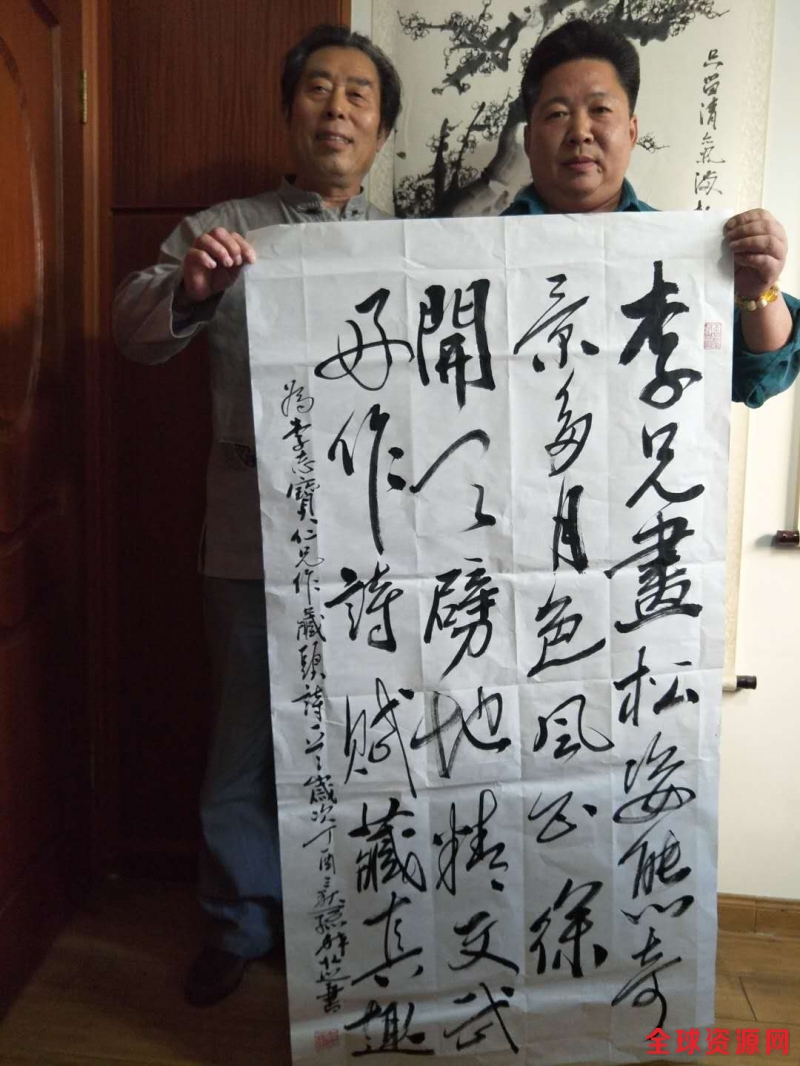 只留清氣滿
李兄畫松姿態奇
景多月色風徐
開天劈地精文武
好作詩賦藏真趣
為李志寶仁兄作藏頭詩一首歲次丁酉秋書
全球资源网